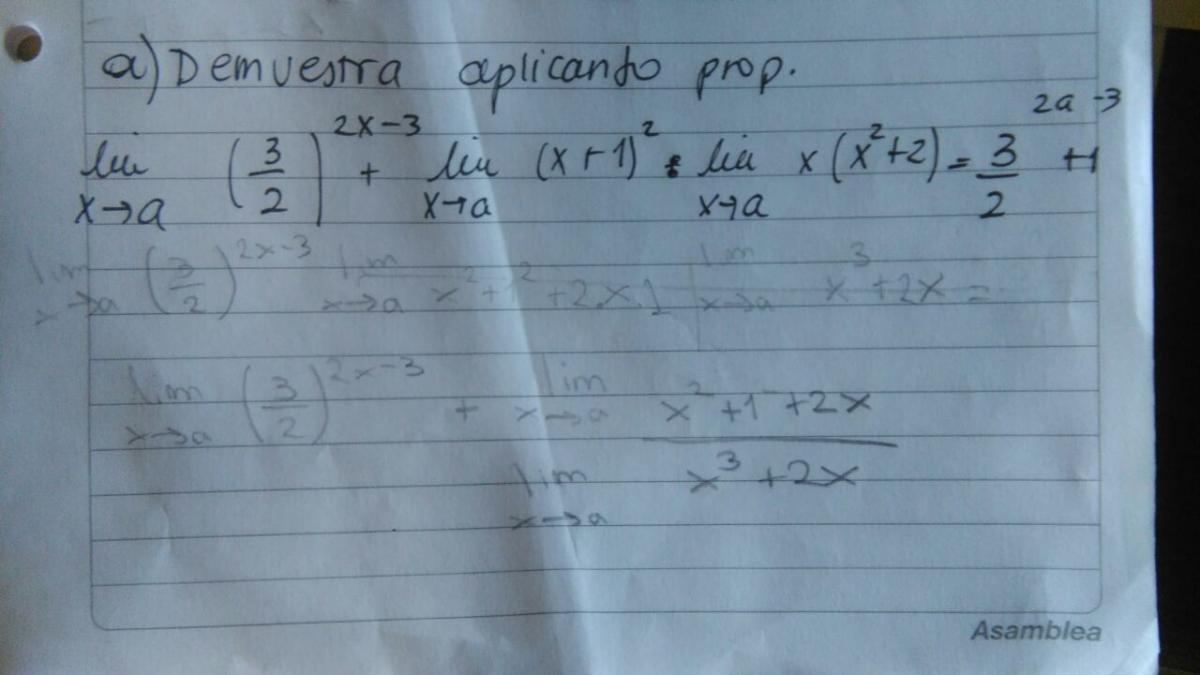 a) Demuestra aplicando prop.
lim x→a (3/2)^(2x-3) + lim x→a (x+1)^2 : lim x→a x(x^2+2) = 3/2^(2a-3) +1
lim x→a (3/2)^(2x-3) lim x→a x^2+1^2+2.x.1 lim x→a x^3+2x =
lim x→a (3/2)^(2x-3) + lim x→a x^2+1+2x
lim x→a x^3+2x
Asamblea